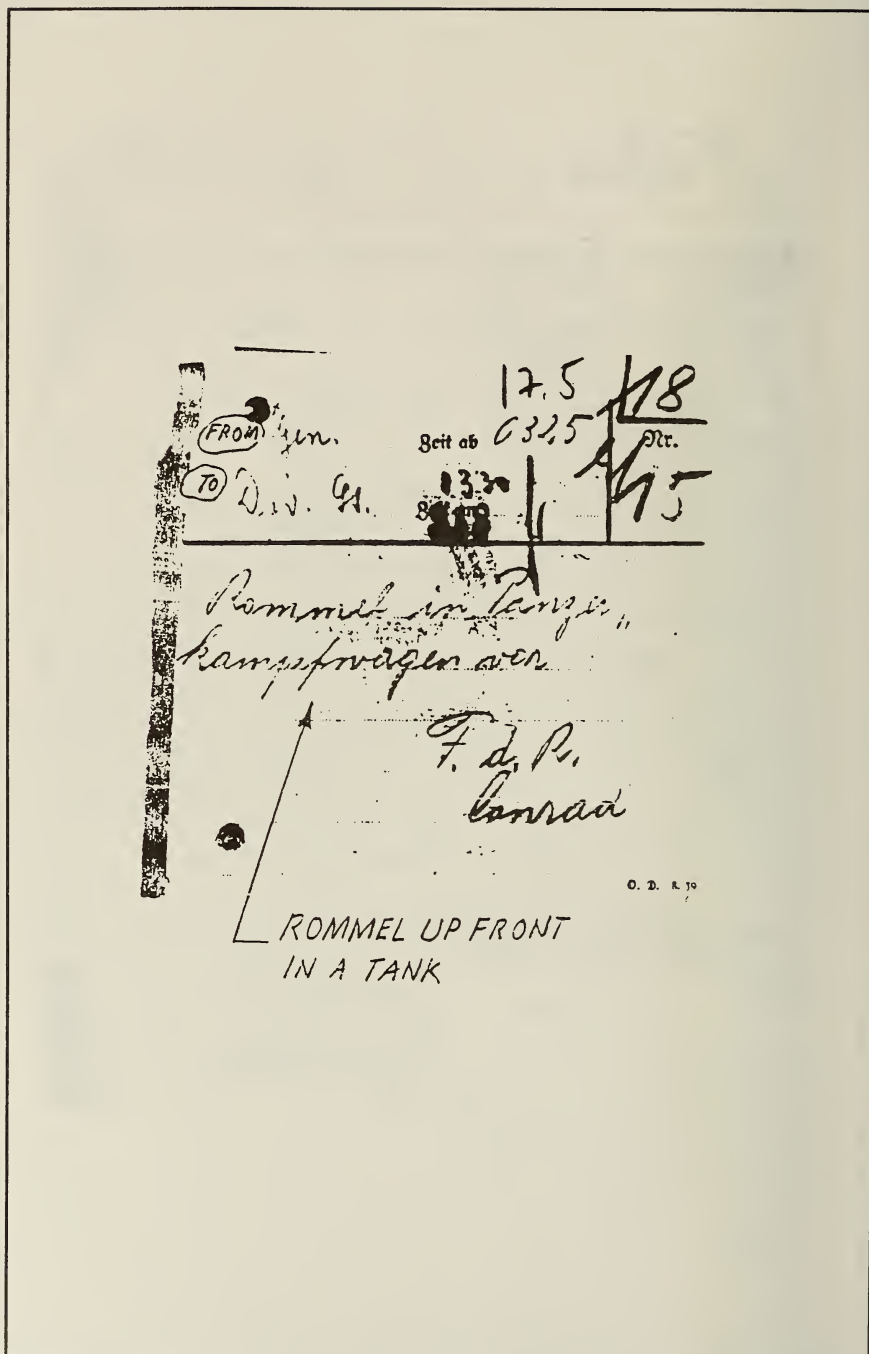 17.5
FROM Gen.
Zeit ab 0325
Nr.
18
TO Div. Gf.
1330
15
Rommel in Panzer„
kampfwagen vor
F. d. R.
Conrad
O. D. K. 39
ROMMEL UP FRONT
IN A TANK